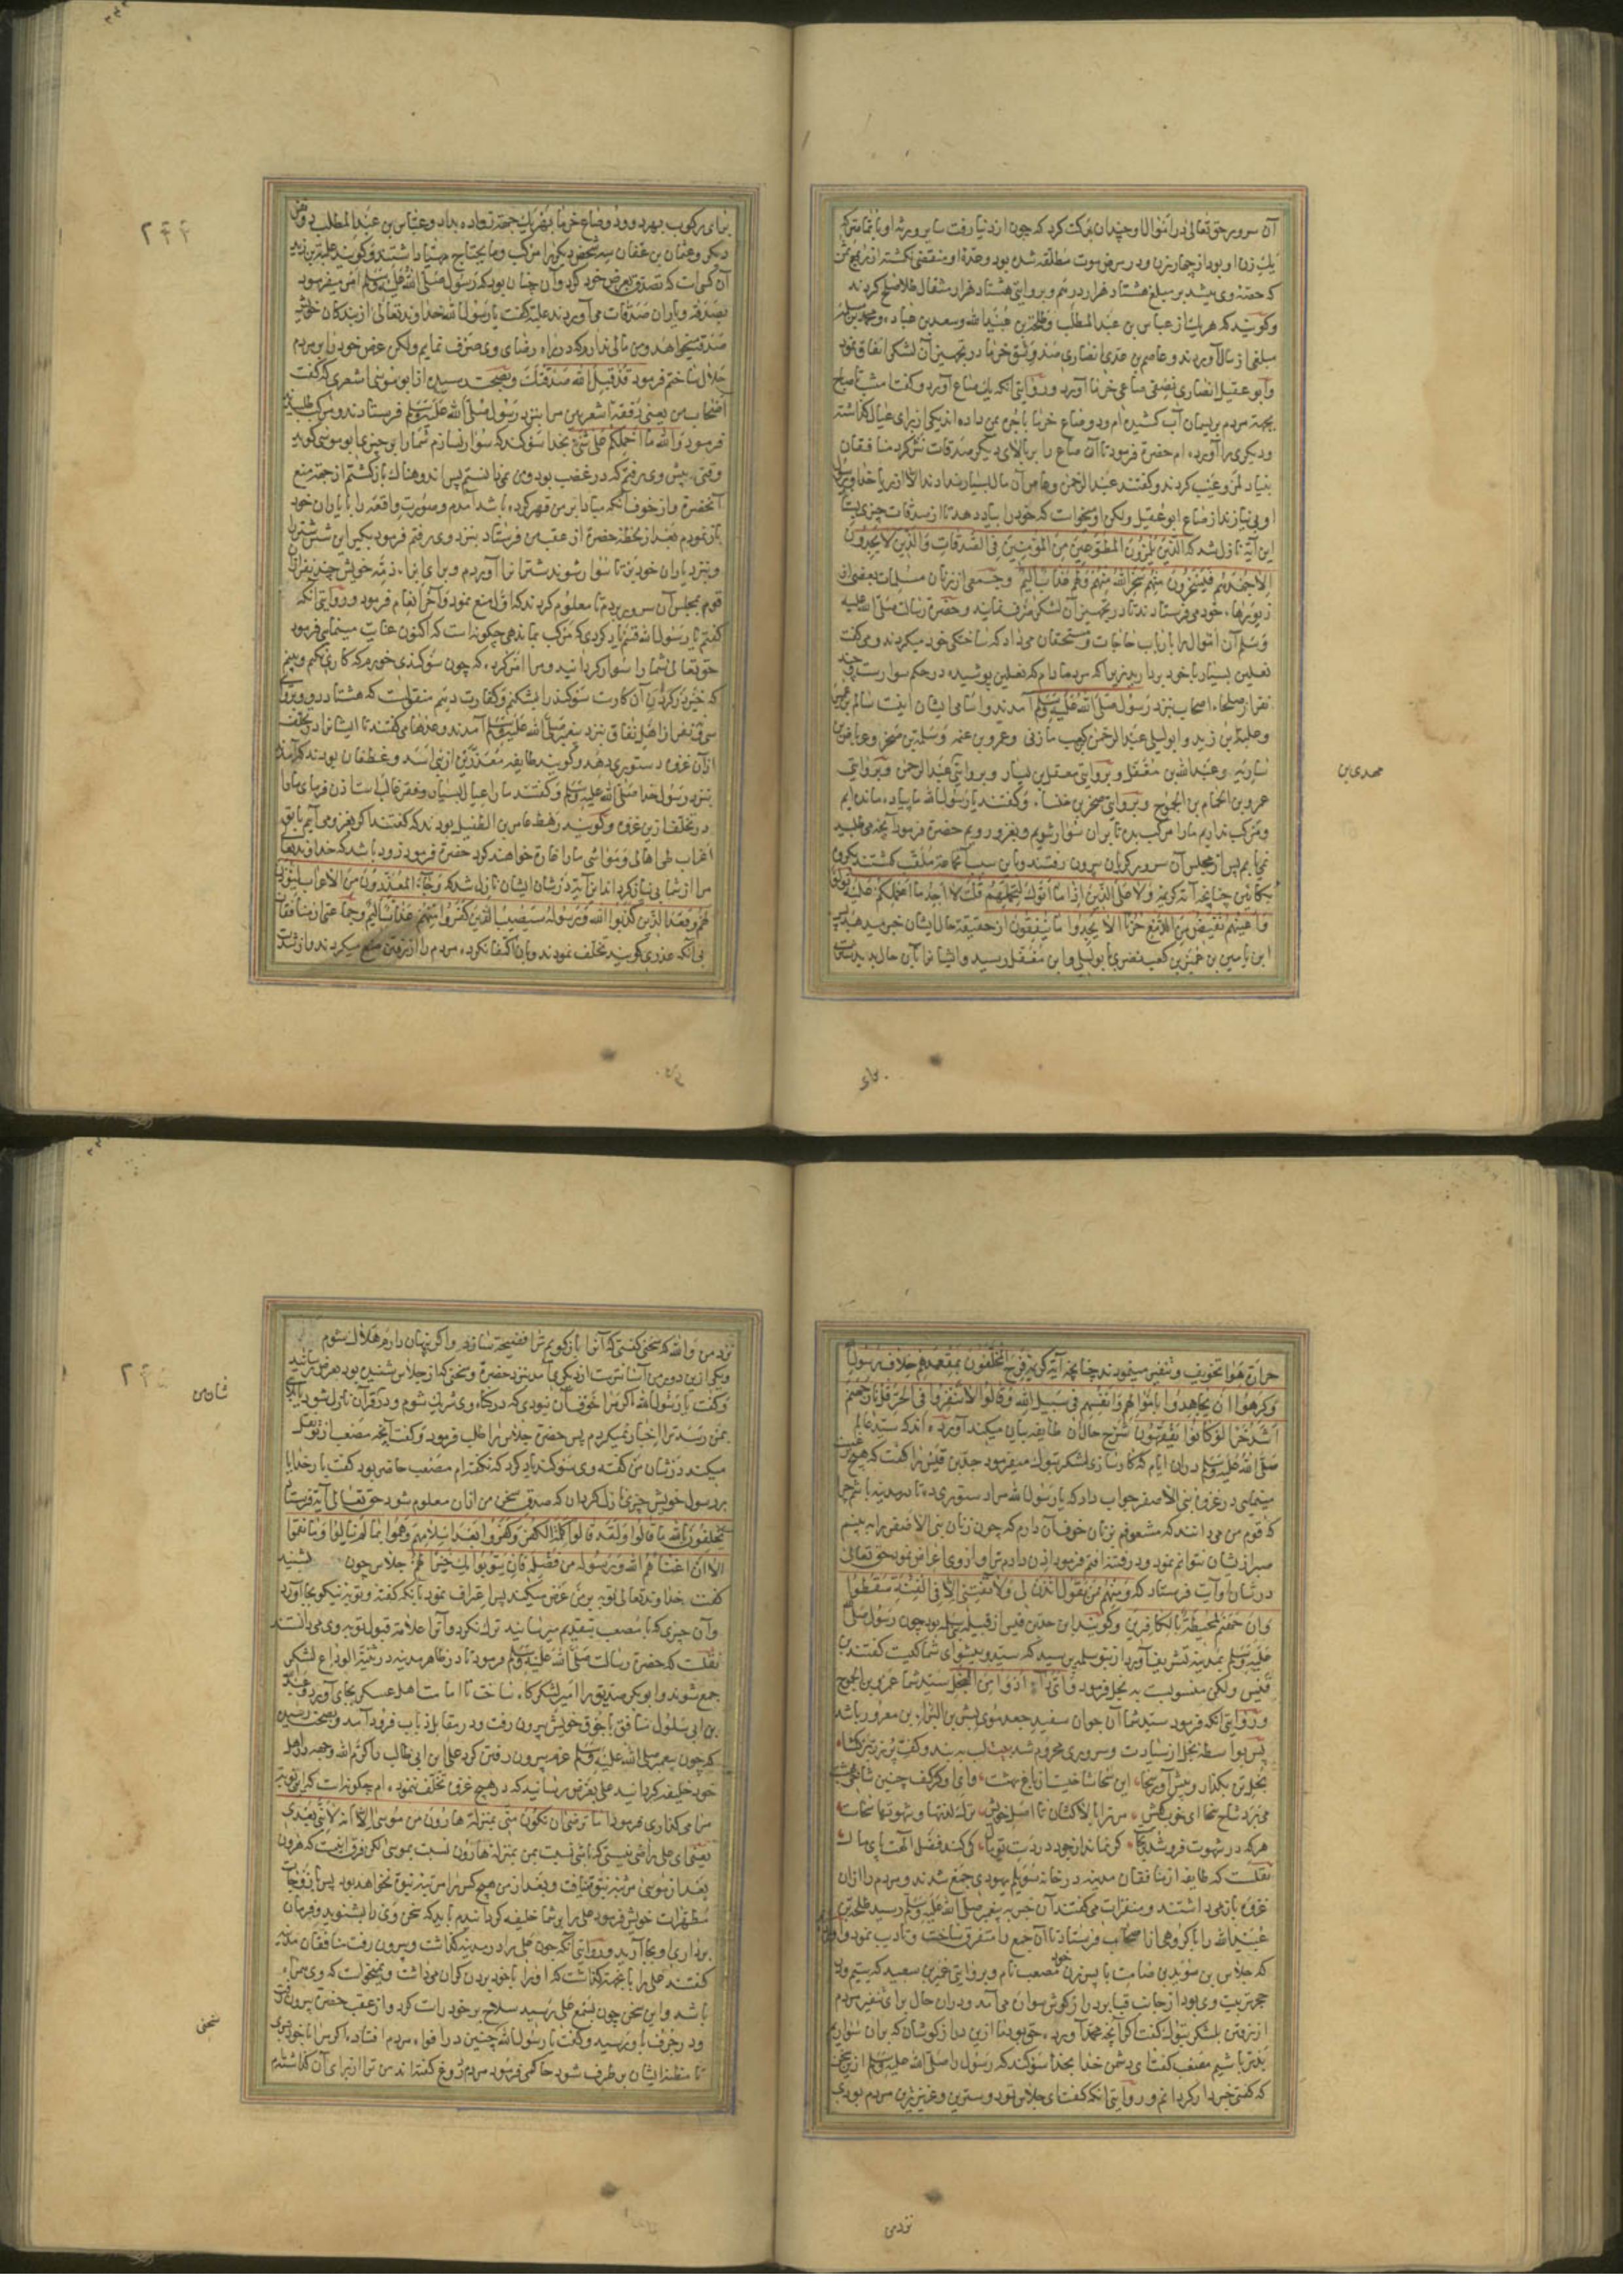 آن سرور حق تعالی در اموال او چندان برکت کرد که چون از دنیا رفت سایر ورثه او با تماضر که
یک زن او بود از چهار زن و در مرض موت مطلقه شده بود و عدة او منقضی نکشته از ربع ثمن
که حصه وی میشد بر مبلغ هشتاد هزار درهم و بروایتی هشتاد هزار مثقال طلا صلح کردند
و کویند که هر یک از عباس بن عبد المطلب و طلحة بن عبید الله و سعد بن عباده و محمد بن مسلمه
مبلغی از مال آوردند و عاصم بن عدی انصاری صد وسق خرما در تجهیز آن لشکر انفاق نمود
و ابو عقیل انصاری نصفی صاعی خرما آورد و روایتی آنکه یک صاع آورد و کفت امشب تا صباح
بجهة مردم بریسمان آب کشیده ام و دو صاع خرما باجرت من داده اند یکی از برای عیال کذاشته
و دیکری را آورده ام حضرة فرمود تا آن صاع را بر بالای دیکر صدقات نثر کرد منافقان
بنیاد لمز و عیب کردند و کفتند عبد الرحمن و عاصم آن مال بسیار ندادند الا از ریا و خدا و رسول
او بی نیازند از صاع ابو عقیل ولکن او میخواست که خود را بیاد دهد تا از صدقات چیزی بستاند
این آیة نازل شد که الذین یلمزون المطوعین من المؤمنین فی الصدقات والذین لا یجدون
الا جهدهم فیسخرون منهم سخر الله منهم ولهم عذاب الیم و جمعی از زنان مسلمات بعضی از
زیورهاء خود می فرستادند تا در تجهیز آن لشکر صرف نمایند و حضرة رسالت صلی الله علیه
و سلم آن اموال را بارباب حاجات و مستحقان می داد که ساختکی خود میکردند و می کفت
نعلین بسیار با خود بردارید زیرا که مرد مادام که نعلین پوشیده در حکم سوار ست و چند
نفر از صلحاء اصحاب بنزد رسول صلی الله علیه وسلم آمدند و اسامی ایشان اینست سالم بن عمیر
و علبة بن زید و ابو لیلی عبد الرحمن بن کعب مازنی و عمرو بن عنمه و سلمة بن صخر و عرباض بن
ساریه و عبد الله بن مغفل و بروایتی معقل بن یسار و بروایتی عبد الرحمن و بروایتی
عمرو بن الحمام بن الجموح و بروایتی صخر بن خنساء و کفتند یا رسول الله ما پیاده مانده ایم
و مرکب نداریم ما را مرکب بده تا بران سوار شویم و بغزو رویم حضرة فرمود آنچه می طلبید
نمی یابم پس از مجلس آن سرور کریان بیرون رفتند و باین سبب آن جماعة ملقب کشتند بکروه
بکائین چنانچه آیة کریمه ولا علی الذین اذا ما اتوک لتحملهم قلت لا اجد ما احملکم علیه تولوا
واعینهم تفیض من الدمع حزنا الا یجدوا ما ینفقون از حقیقة حال ایشان خبر میدهد
ابن یامین بن عمیر بن کعب نضری بابو لیلی و ابن مغفل رسید و ایشانرا بآن حال بدید
محمدی بن
برای
برای رکوب بهر دو و دو صاع خرما بهر یک بجهة زواده بداد و عباس بن عبد المطلب دو شخص
دیکر و عثمان بن عفان سه شخص دیکر را مرکب و مایحتاج مهیا داشتند و کویند علبة بن زید
آن کس است که تصدق بعرض خود کرد و آن چنان بود که رسول صلی الله علیه وسلم امر میفرمود
بصدقه و یاران صدقات می آوردند علبه کفت یا رسول الله خداوند تعالی از بندکان خویش
صدقه میخواهد و من مالی ندارم که در راه رضای وی صرف نمایم ولکن عرض خود را بر مردم
حلال ساختم فرمود قد قبل الله صدقتک و بصحت رسیده از ابو موسی اشعری که کفت
اصحاب من یعنی رفقة اشعریین مرا بنزد رسول صلی الله علیه وسلم فرستادند و مرکب طلبیدند
فرمود والله ما احملکم علی شیء بخدا سوکند که سوار نسازم شما را بر چیزی ابو موسی کوید
وقتی پیش وی رفتم که در غضب بود و من نمی دانستم پس اندوهناک بازکشتم از جهة منع
آنحضرة و از خوف آنکه مبادا بر من قهر کرده باشد آمدم و صورت واقعه را با یاران خود
باز نمودم بعد از لحظه حضرة از عقب من فرستاد بنزد وی رفتم فرمود بکیر این شش شتر را
و بنزد یاران خود بر تا سوار شوند شترانرا آوردم و برای ابراء ذمة خویش چند نفر از آن
قوم بمجلس آن سرور بردم تا معلوم کردند که اول منع نمود و آخر انعام فرمود و روایتی آنکه
کفتم یا رسول الله قسم یاد کردی که مرکب بما ندهی چکونه است که اکنون عنایت مینمایی فرمود
حق تعالی شما را سوار کردانید و مرا امر کرد که چون سوکندی خورم که کاری نکنم و بینم
که خیر در کردن آن کارست سوکند را بشکنم و کفارت دهم منقولست که هشتاد و دو و بروایتی
سی و نفر از اهل نفاق بنزد پیغمبر صلی الله علیه وسلم آمدند و عذرها می کفتند تا ایشانرا در تخلف
از آن غزوه دستوری دهد و کویند طایفه معذرین از بنی اسد و غطفان بودند که آمدند
بنزد رسول خدا صلی الله علیه وسلم و کفتند ما را عیال بسیار و فقر غالب است اذن فرمای ما را
در تخلف ازین غزوه و کویند رهط عامر بن الطفیل بودند که کفتند اکر بغزو می آییم با تو
اعراب طی اهالی و مواشی ما را غارة خواهند کرد حضرة فرمود زود باشد که خداوند تعالی
مرا از شما بی نیاز کرداند این آیة در شان ایشان نازل شد که وجاء المعذرون من الاعراب لیؤذن
لهم وقعد الذین کذبوا الله ورسوله سیصیب الذین کفروا منهم عذاب الیم و جماعتی از منافقان
بی آنکه عذری کویند تخلف نمودند و باین اکتفا نکرده مردم را از رفتن منع میکردند و از شدت
حرارة هوا تخویف و تنفیر مینمودند چنانچه آیة کریمه فرح المخلفون بمقعدهم خلاف رسول الله
وکرهوا ان یجاهدوا باموالهم وانفسهم فی سبیل الله وقالوا لا تنفروا فی الحر قل نار جهنم
اشد حرا لو کانوا یفقهون شرح حال آن طایفه بیان میکند آورده اند که سید عالم
صلی الله علیه وسلم دران ایام که کارسازی لشکر تبوک میفرمود جد بن قیس را کفت که هیچ رغبت
مینمایی در غزو بنی الاصفر جواب داد که یا رسول الله مرا دستوری ده تا در مدینه باشم چرا
که قوم من می دانند که مشعوفم بزنان خوف آن دارم که چون زنان بنی الاصفر را به بینم
صبر از ایشان نتوانم نمود و در فتنه افتم فرمود اذن دادم ترا و از وی اعراض نمود حق تعالی
در شان او آیت فرستاد که ومنهم من یقول ائذن لی ولا تفتنی الا فی الفتنة سقطوا
وان جهنم لمحیطة بالکافرین و کویند این جد بن قیس از قبیله بنی سلمه بود چون رسول صلی
علیه وسلم بمدینه تشریف آورد از بنو سلمه پرسید که سید و پیشوای شما کیست کفتند جد بن
قیس ولکن منسوبست به بخل فرمود وای داء ادوا من البخل سید شما عمرو بن الجموح
و روایتی آنکه فرمود سید شما آن جوان سفید جعد موی بشر بن البراء بن معرور باشد
پس بواسطه بخل از سیادت و سروری محروم شد بیت لب به بند و کف پر زر برکشاء
بخل تن بکذار و پیش آور سخاء این سخا شاخیست از باغ بهشت وای او کز کف چنین شاخی بهشت
می برد شاخ سخا ای خوب کیش مر ترا بالا کشان تا اصل خویش ترک لذتها و شهوتها سخاست
هر که در شهوت فرو شد برنخاست کر نماند از جود در دست تو مال کی کند فضل الهت پای مال
نقلست که طایفه از منافقان مدینه در خانه سویلم یهودی جمع شدند و مردم را ازان
غزوه باز می داشتند و منفرات می کفتند آن خبر به پیغمبر صلی الله علیه وسلم رسید طلحة بن
عبید الله را با کروهی از اصحاب فرستاد تا آن جمع را متفرق ساخت و تادیب نمود
که جلاس بن سوید بن صامت با پسر زن خود مصعب نام و بروایتی عمیر بن سعید که یتیم و در
حجر تربیت وی بود از جانب قبا بر دراز کوش سوار می آمد و دران حال برای تنفیر مردم
از رفتن بلشکر تبوک کفت اکر آنچه محمد آورده حق بود ما ازین دراز کوشان که بران سواریم
بدتر باشیم مصعب کفت ای دشمن خدا بخدا سوکند که رسول را صلی الله علیه وسلم ازین سخن
که کفتی خبردار کردانم و روایتی آنکه کفت ای جلاس تو دوسترین و عزیزترین مردم بودی
نزد من
نزد من والله که سخنی کفتی که آنرا باز کویم ترا فضیحة سازم و اکر پنهان دارم هلاک شوم
و یکی ازین دو بر من آسان ترست از دیکری آمد بنزد حضرة و سخنی که از جلاس شنیده بود بعرض رسانید
و کفت یا رسول الله اکر مرا خوف آن نبودی که در کناه وی شریک شوم و در قرآن نازل شود
بمن رسد ترا اخبار نمیکردم پس حضرة جلاس را طلب فرمود و کفت آنچه مصعب از تو نقل
میکند در شان من کفته وی سوکند یاد کرد که نکفته ام مصعب حاضر بود کفت بار خدایا
بر رسول خویش چیزی نازل کردان که صدق سخن من ازان معلوم شود حق تعالی آیة فرستاد
یحلفون بالله ما قالوا ولقد قالوا کلمة الکفر وکفروا بعد اسلامهم وهموا بما لم ینالوا وما نقموا
الا ان اغناهم الله ورسوله من فضله فان یتوبوا یک خیرا لهم جلاس چون بشنید
کفت خداوند تعالی توبه بر من عرض میکند پس اعتراف نمود بآنکه کفته و توبه نیکو بجا آورد
و آن چیزی که با مصعب بتقدیم میرسانید ترک نکرد و آنرا علامة قبول توبه وی می دانستند
نقلست که حضرة رسالت صلی الله علیه وسلم فرمود تا در ظاهر مدینه در ثنیة الوداع لشکر
جمع شوند و ابو بکر صدیق را امیر لشکرکاه ساخت تا امامت اهل عسکر بجای آورد و عبد الله
بن ابی سلول منافق با جوق خویش بیرون رفت و در مقابل ذباب فرود آمد و بصحت رسیده
که چون پیغمبر صلی الله علیه وسلم عزم بیرون رفتن کرد علی ابن ابی طالب را کرم الله وجهه در اهل
خود خلیفه کردانید علی بعرض رسانید که در هیچ غزوه تخلف ننموده ام چکونه است که این نوبت
مرا می کذاری فرمود اما ترضی ان تکون منی بمنزلة هارون من موسی الا انه لا نبی بعدی
یعنی ای علی راضی نیستی که باشی نسبت بمن بمنزلة هارون نسبت بموسی لکن فرق اینست که هرون
بعد از موسی مرتبه نبوة یافت و بعد از من هیچ کس را مرتبه نبوة نخواهد بود پس با زوجات
مطهرات خویش فرمود علی را بر شما خلیفه کردانیدم باید که سخن وی را بشنوید و فرمان
برداری او بجا آرید و روایتی آنکه چون علی را در مدینه کذاشت و بیرون رفت منافقان مدینه
کفتند علی را با نجهة کذاشت که او را با خود بردن کران می داشت و نمیخواست که وی همراه
باشد و این سخن چون بسمع علی رسید سلاح بر خود راست کرد و از عقب حضرة بیرون رفت
و در جرف باو رسید و کفت یا رسول الله چنین در افواه مردم افتاده اکر مرا با خود بری
تا مظنه ایشان برطرف شود حاکم فرمود مردم دروغ کفته اند من ترا از برای آن کذاشتم
شان من
سخنی